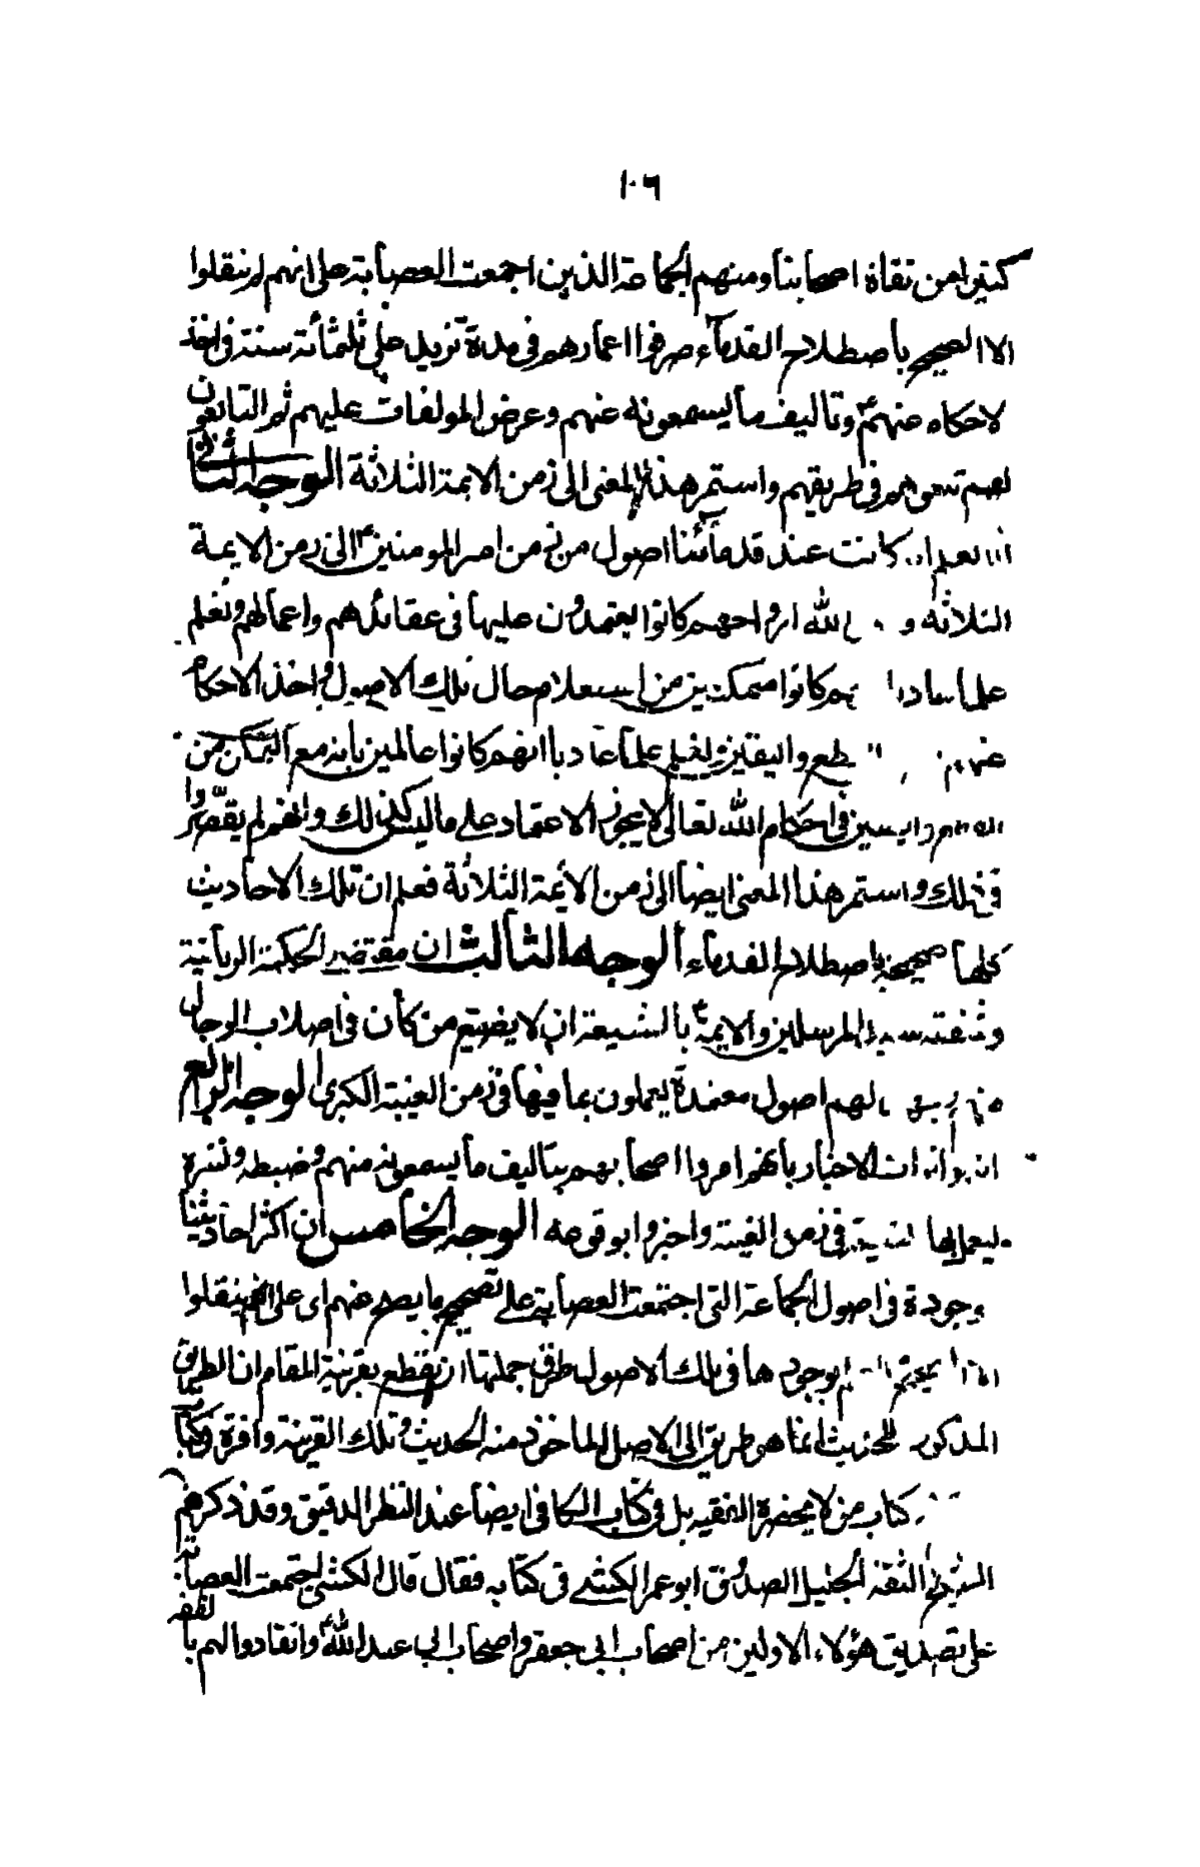 ١٠٦
كثيرا من ثقاة اصحابنا ومنهم الجماعة الذين اجمعت العصابة على انهم لم ينقلوا
الا الصحيح بأصطلاح القدماء صرفوا اعمارهم في مدة تزيد على ثلثمائة سنة في اخذ
لاحكام عنهم وتاليف ما يسمعونه عنهم وعرض المولفات عليهم ثم التابعون
لهم تبعوهم في طريقهم واستمر هذا المعنى الى زمن الايمة الثلاثة الوجه الثاني
كانت عند قدمائنا اصول من زمن امير المومنين الى زمن الايمة
الثلاثة الله ارواحهم كانوا يعتمدون عليها في عقائدهم واعمالهم ونعلم
علما عاديا كانوا متمكنين من استعلام حال تلك الاصول واخذ الاحكام
واليقين ونعلم علما عاديا انهم كانوا عالمين بانه مع التمكن من
في احكام الله تعالى لا يجوز الاعتماد على ما ليس كذلك وانهم لم يقصروا
في ذلك واستمر هذا المعنى ايضا الى زمن الأئمة الثلاثة فعلم ان تلك الاحاديث
كلها صحيحة باصطلاح القدماء الوجه الثالث ان مقتضى الحكمة الربانية
وشفقة سيد المرسلين والايمة بالشيعة ان لا يضيع من كان في اصلاب الرجال
لهم اصول معتمدة يعملون بما فيها في زمن الغيبة الكبرى الوجه الرابع
الاخبار بأنهم امروا اصحابهم بتاليف ما يسمعونه منهم وضبطه ونشره
ليعمل بها في زمن الغيبة واخبروا بوقوعه الوجه الخامس ان اكثر احاديثنا
موجودة في اصول الجماعة التي اجتمعت العصابة على تصحيح ما يصح عنهم اى على انهم لم ينقلوا
بوجودها في تلك الاصول طرق جملتها ان نقطع بقرينة المقام ان الطريق
المذكور للحديث انما هو طريق الى الاصل الماخوذ منه الحديث وتلك القرينة وافرة
كتاب من لا يحضره الفقيه بل في كتاب الكافي ايضا عند النظر الدقيق وقد ذكرهم
الشيخ الثقة الجليل الصدوق ابو عمر الكشي في كتابه فقال قال الكشي اجتمعت العصابة
على تصديق هؤلاء الاولين من اصحاب ابي جعفر واصحاب ابي عبد الله وانقادوا لهم بالفقه